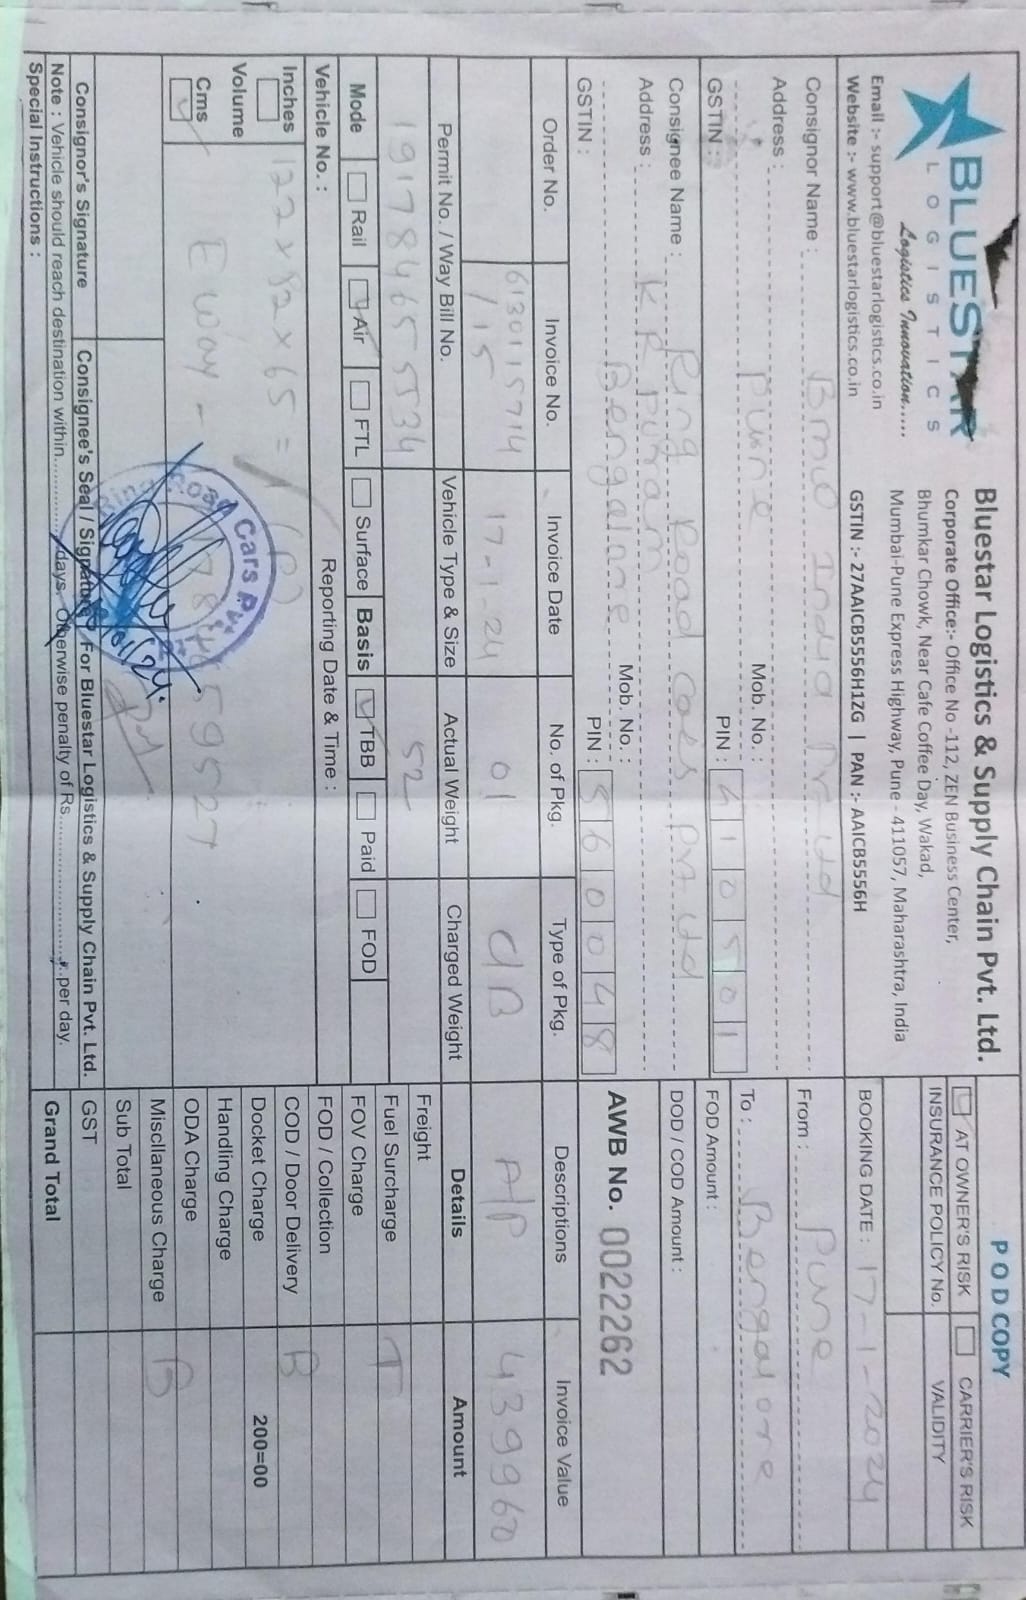 BLUESTAR
LOGISTICS
Logistics Innovation.....
Email :- support@bluestarlogistics.co.in
Website :- www.bluestarlogistics.co.in
Bluestar Logistics & Supply Chain Pvt. Ltd.
Corporate Office:- Office No -112, ZEN Business Center,
Bhumkar Chowk, Near Cafe Coffee Day, Wakad,
Mumbai-Pune Express Highway, Pune - 411057, Maharashtra, India
GSTIN :- 27AAICB5556H1ZG | PAN :- AAICB5556H
POD COPY
AT OWNER'S RISK CARRIER'S RISK
INSURANCE POLICY No. VALIDITY
BOOKING DATE : 17-1-2024
Consignor Name : BMW India Pvt Ltd
Address :
Pune Mob. No. :
GSTIN : PIN : 410501
From : Pune
To : Bengalore
FOD Amount :
DOD / COD Amount :
AWB No. 0022262
Consignee Name : Ring Road Cars Pvt Ltd
Address : K R Puram
Bengalore Mob. No. :
GSTIN : PIN : 560048
Order No. Invoice No. Invoice Date No. of Pkg. Type of Pkg. Descriptions Invoice Value
6130115714 17-1-24 01 CB A/P 439960
/15
Permit No. / Way Bill No. Vehicle Type & Size Actual Weight Charged Weight Details Amount
191784655534 52
Mode Rail Air FTL Surface Basis TBB Paid FOD
Vehicle No. : Reporting Date & Time :
Inches 122 x 82 x 65 = 1 (P)
Volume
Cms
E way - 178 59527
Freight
Fuel Surcharge T
FOV Charge
FOD / Collection
COD / Door Delivery B
Docket Charge 200=00
Handling Charge
ODA Charge
Miscllaneous Charge B
Sub Total
GST
Grand Total
Road Cars Pvt. Ltd
Consignor's Signature Consignee's Seal / Signature For Bluestar Logistics & Supply Chain Pvt. Ltd.
Note : Vehicle should reach destination within..............days. Otherwise penalty of Rs......................per day.
Special Instructions :